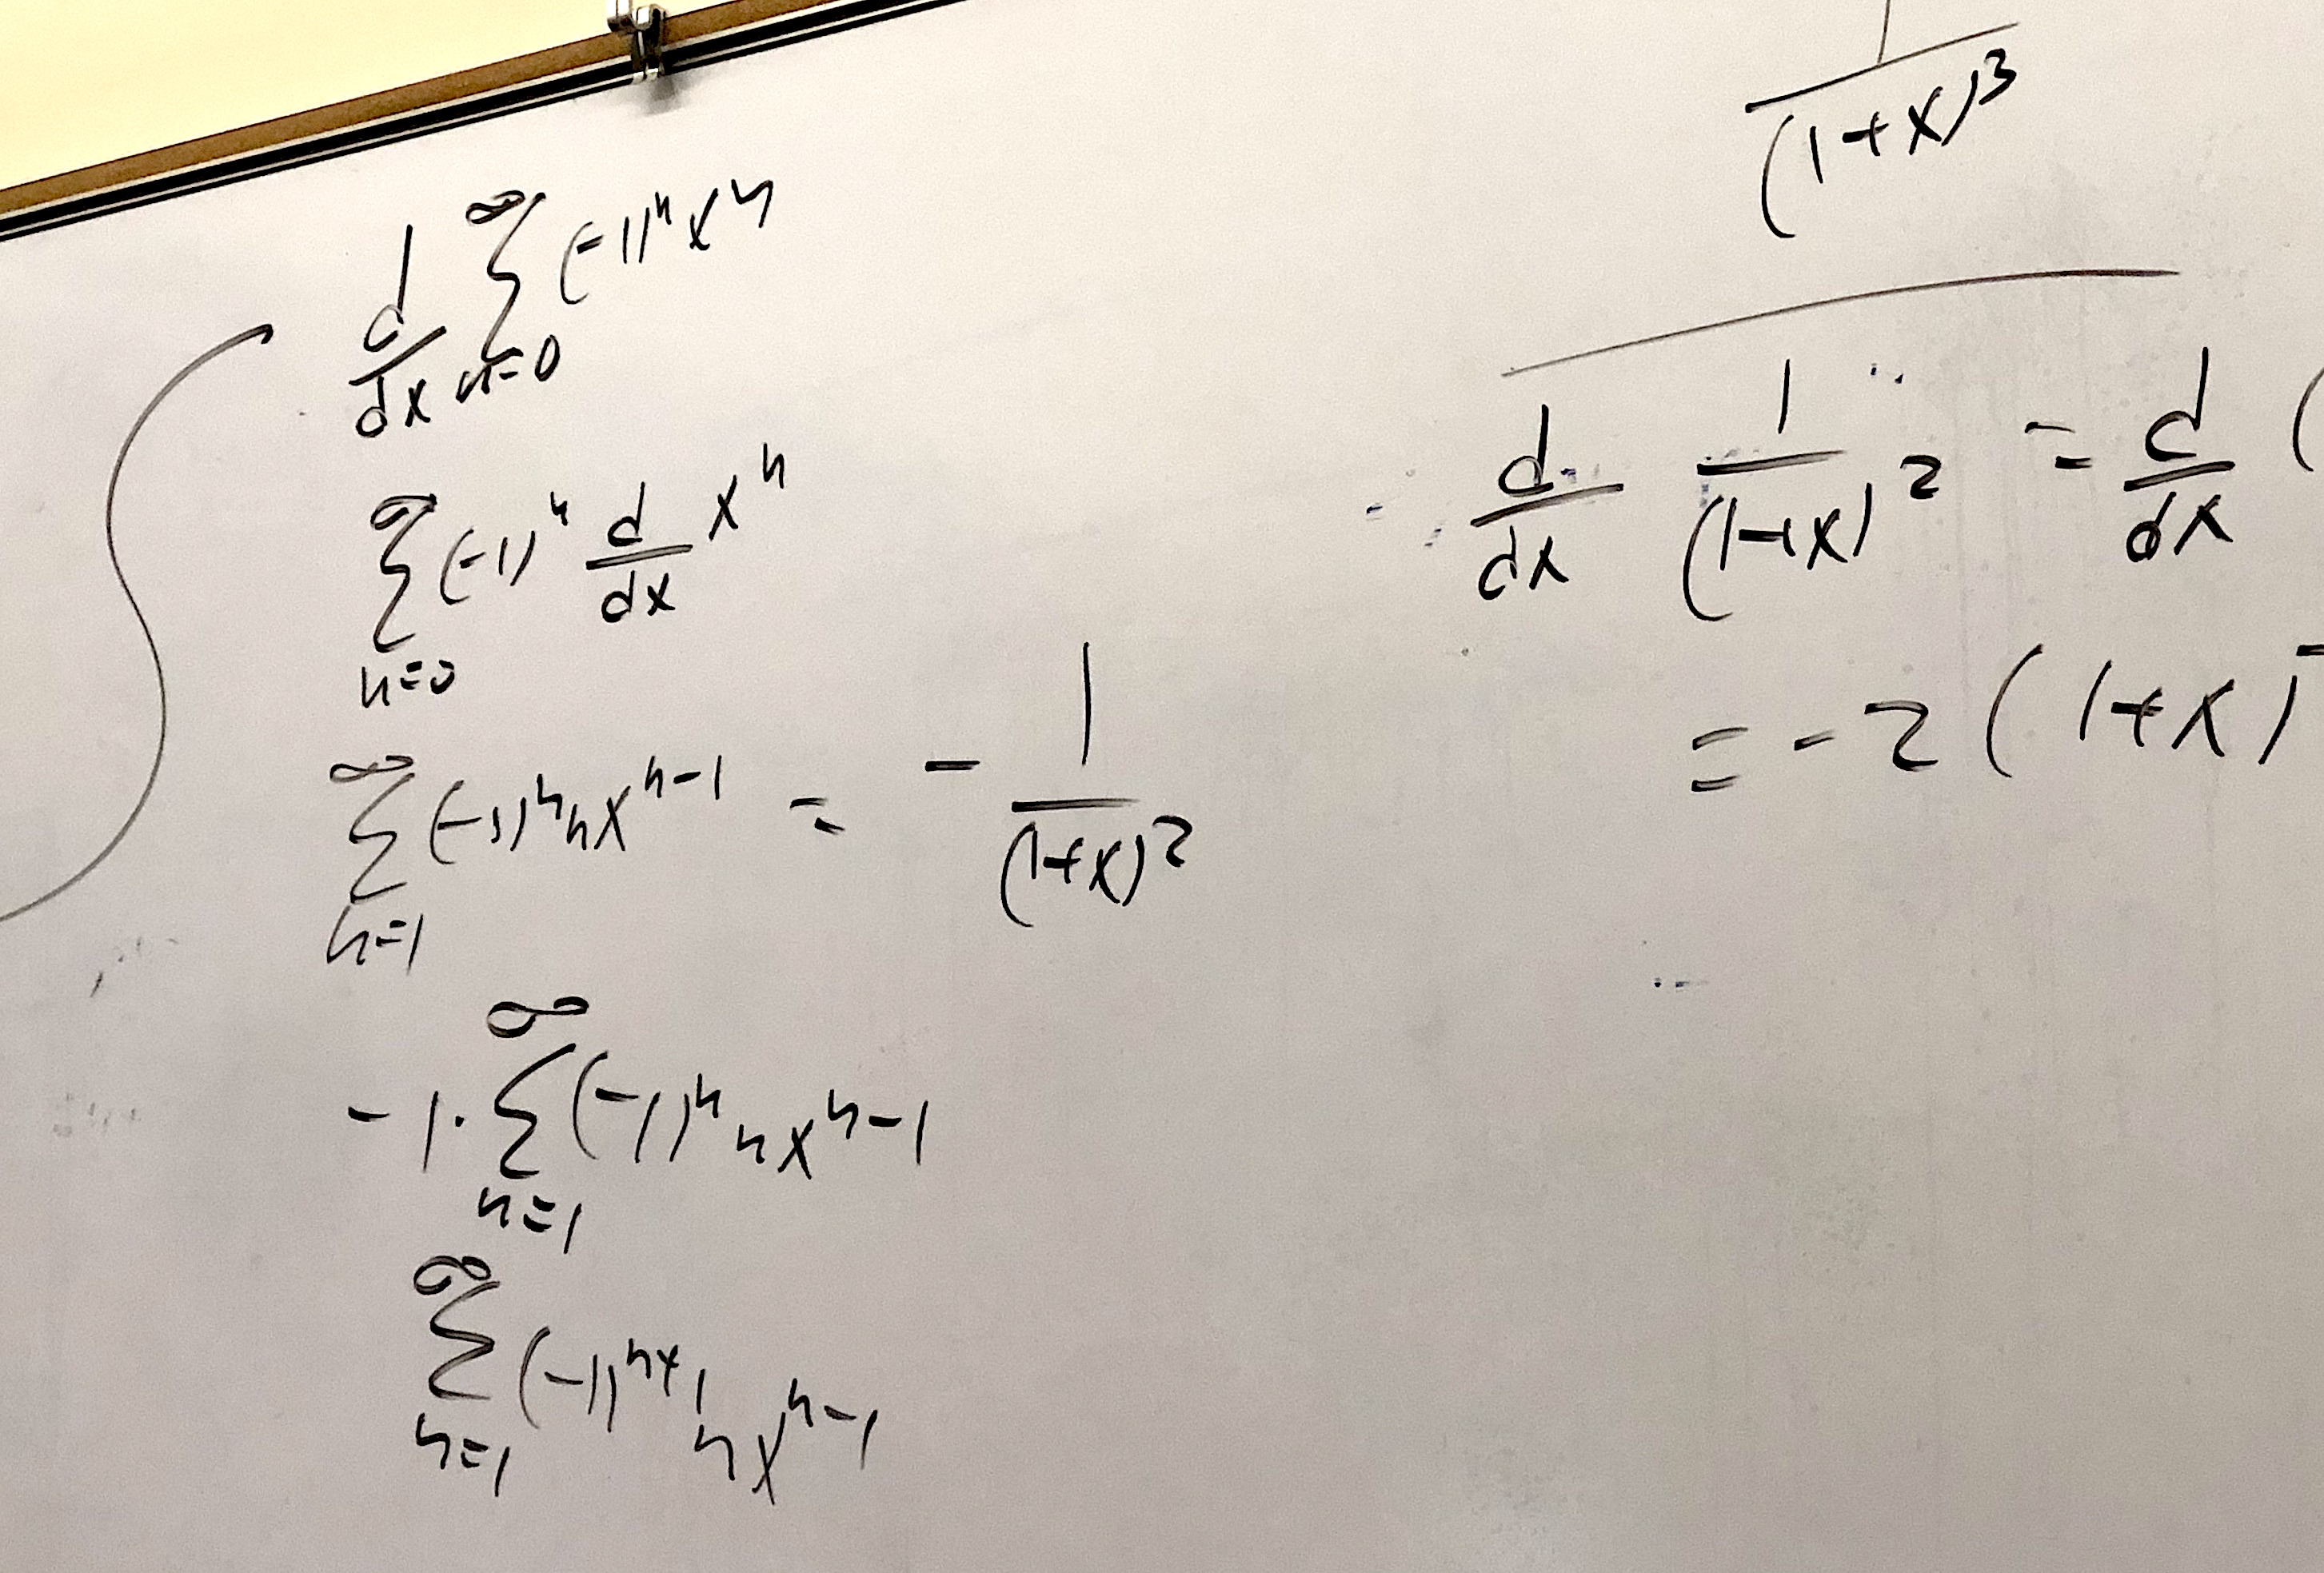 d/dx ∑_{n=0}^{∞} (-1)^n x^n
∑_{n=0}^{∞} (-1)^n d/dx x^n
∑_{n=1}^{∞} (-1)^n n x^{n-1} = - 1/(1+x)^2
-1 · ∑_{n=1}^{∞} (-1)^n n x^{n-1}
∑_{n=1}^{∞} (-1)^{n+1} n x^{n-1}
1/(1+x)^3
d/dx 1/(1+x)^2 = d/dx (
= -2 (1+x)^-